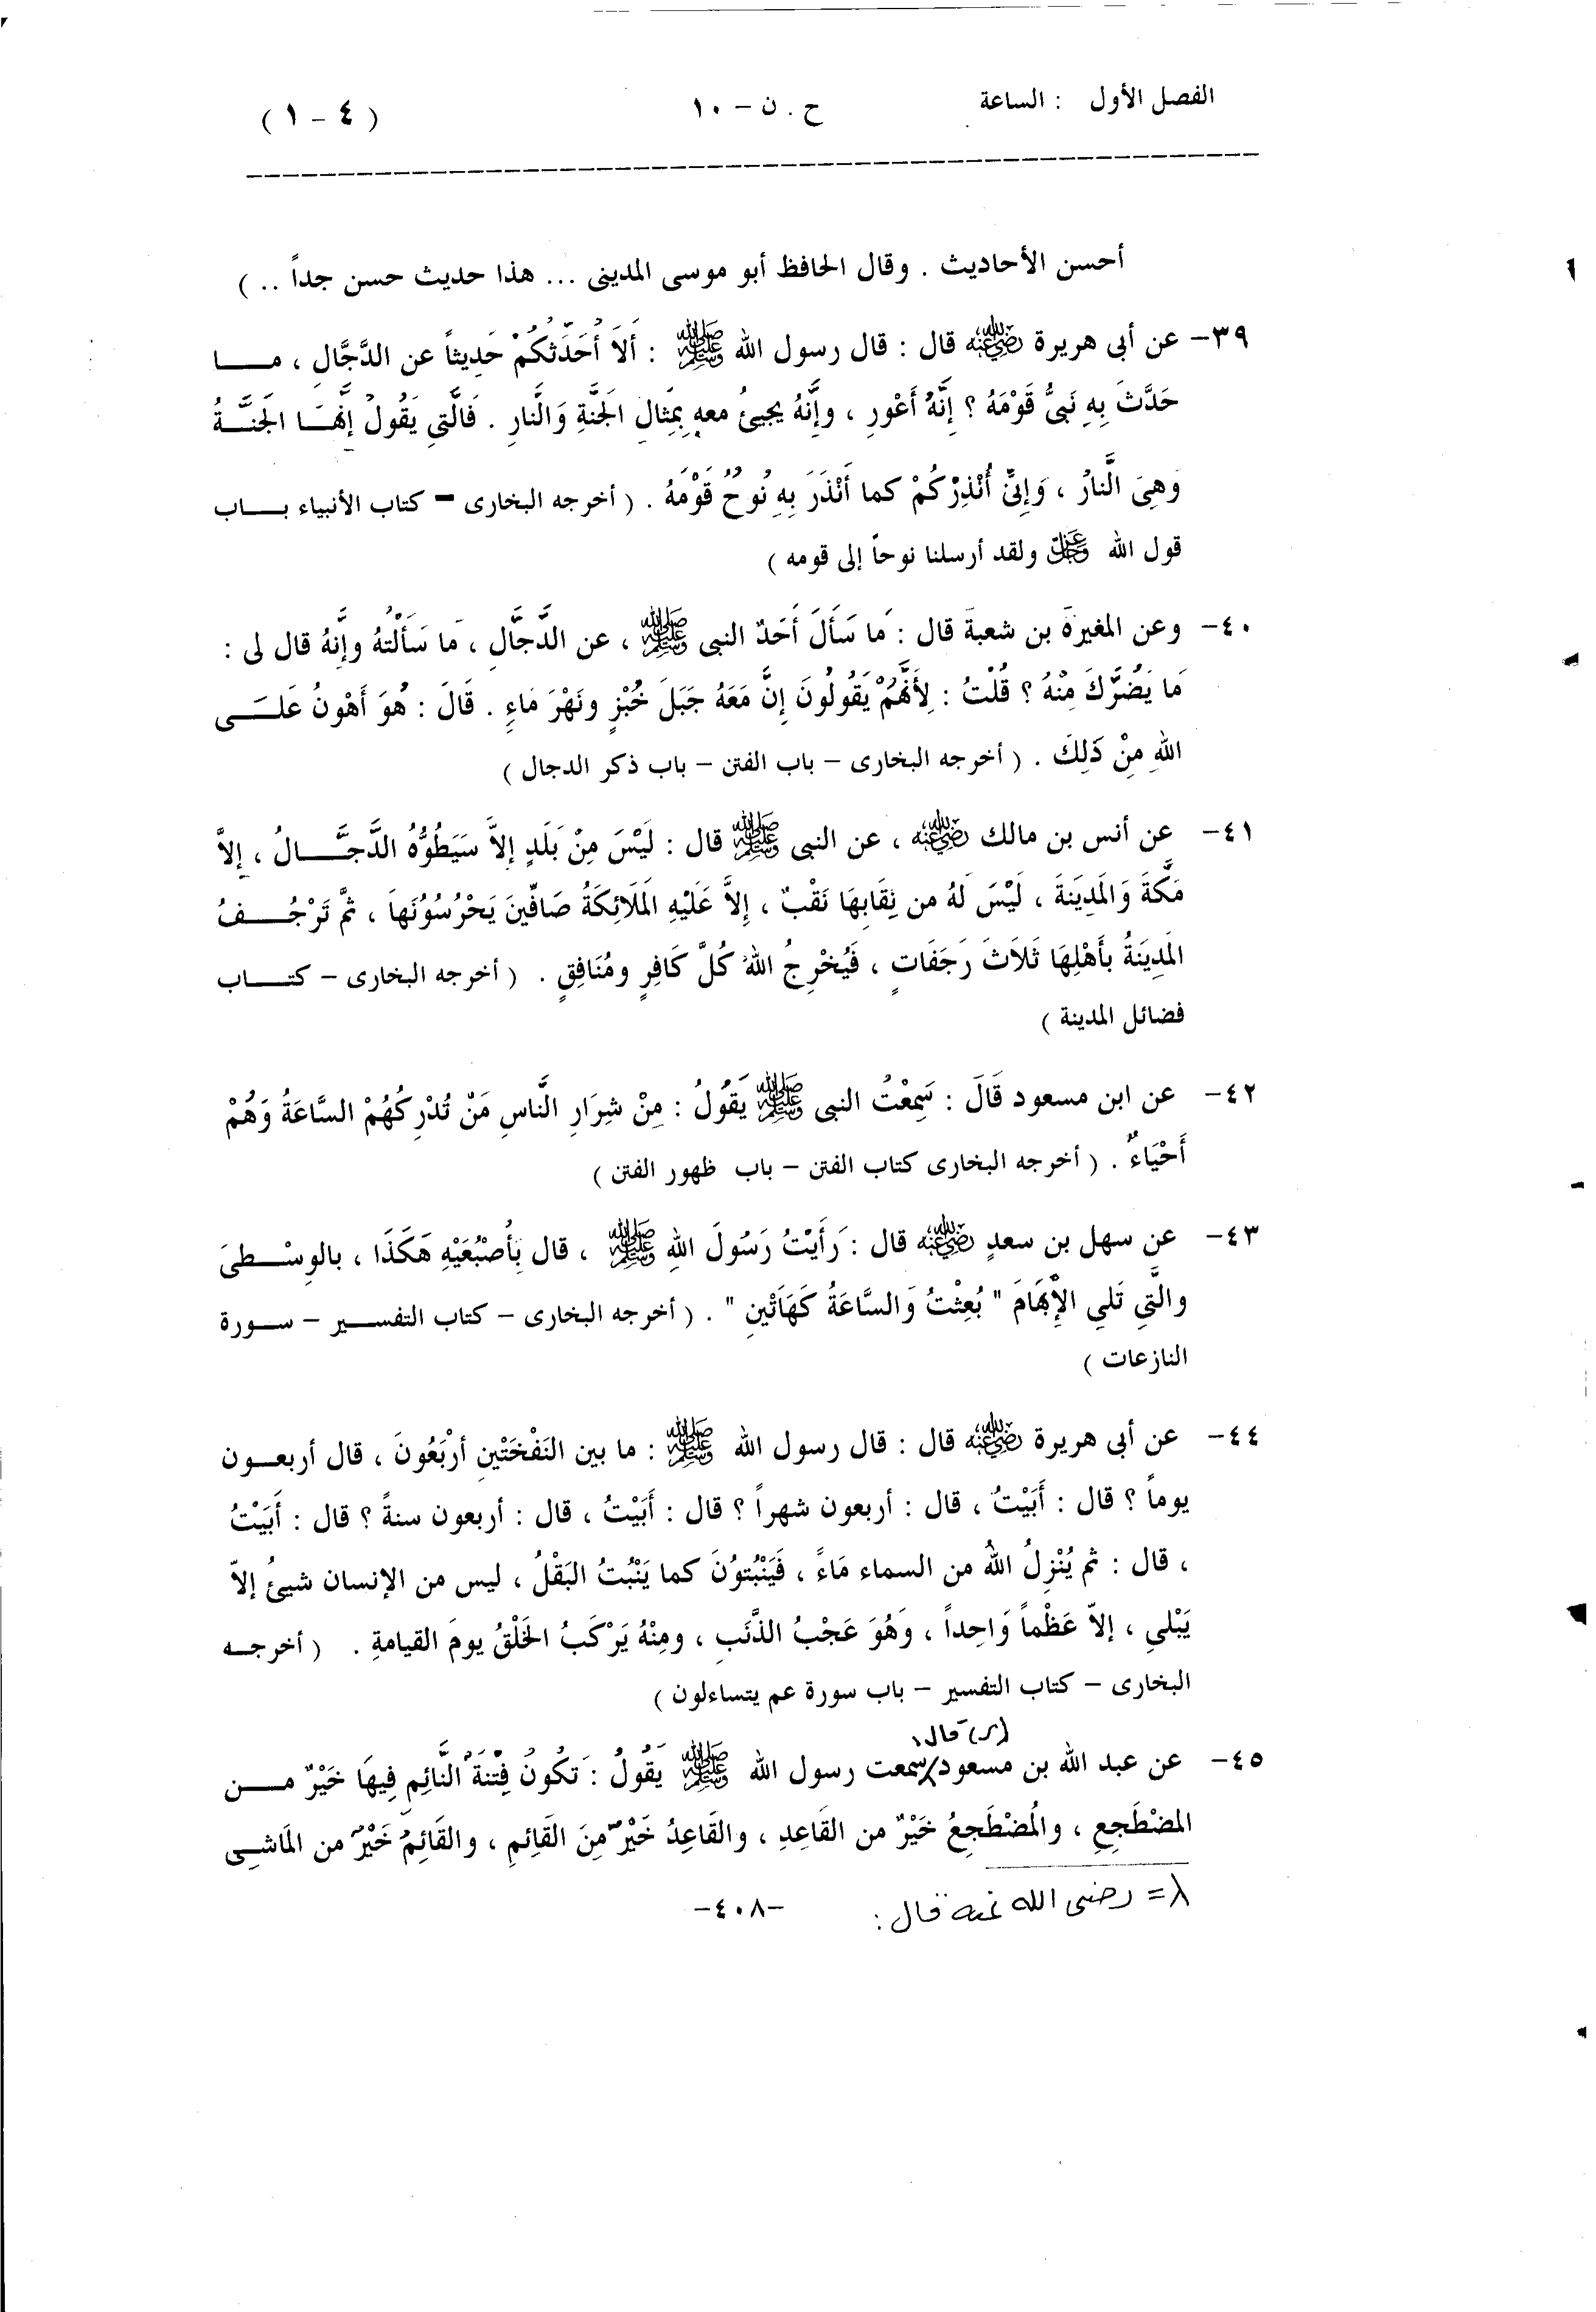 الفصل الأول : الساعة ح . ن – ١٠ ( ٤ – ١ )
أحسن الأحاديث . وقال الحافظ أبو موسى المدينى ... هذا حديث حسن جداً .. )
٣٩– عن أبى هريرة رضي الله عنه قال : قال رسول الله ﷺ : أَلاَ أُحَدِّثُكُمْ حَدِيثاً عن الدَّجَّالِ ، مـــا
حَدَّثَ بِهِ نَبيُّ قَوْمَهُ ؟ إِنَّهُ أَعْورِ ، وإِنَّهُ يجيئُ معهِ بِمِثالِ الجَنَّةِ وَالَّنارِ . فَالَّتيِ يَقُولُ إِنَّهَـا الجَنَّـةُ
وَهِيَ الَّنارُ ، وَإِنيِّ أُنْذِرُكُمْ كما أَنْذَرَ بِهِ نُوحٌ قَوْمَهُ . ( أخرجه البخارى – كتاب الأنبياء بـاب
قول الله عز وجل ولقد أرسلنا نوحاً إلى قومه )
٤٠– وعن المغيرة بن شعبة قال : مَا سَأَلَ أَحَدٌ النبى ﷺ ، عن الدَّجَّالِ ، مَا سَأَلْتهُ وإِنَّهُ قال لى :
مَا يَضُرَّكَ مِنْهُ ؟ قُلْتُ : لِأَنَّهُمْ يَقُولُونَ إِنَّ مَعَهُ جَبَلَ خُبْزٍ ونَهْرَ مَاءٍ . قَالَ : هُوَ أَهْونُ عَلَـى
اللهِ مِنْ ذَلِكَ . ( أخرجه البخارى – باب الفتن – باب ذكر الدجال )
٤١– عن أنس بن مالك رضي الله عنه ، عن النبى ﷺ قال : لَيْسَ مِنْ بَلَدٍ إلاَّ سَيَطُوُّهُ الدَّجَّـالُ ، إلاَّ
مَكَّةَ وَالمَدِيَنةَ ، لَيْسَ لَهُ من نِقَابِهَا نَقْبٌ ، إِلاَّ عَلَيْهِ المَلَائِكَةُ صَافِّينَ يَحْرُسُوُنَهاَ ، ثمَّ تَرْجُـفُ
المَدِيَنةُ بأَهْلِهَا ثَلاَثَ رَجَفَاتٍ ، فَيُخْرِجُ اللهُ كُلَّ كَافِرٍ ومُنَافِقٍ . ( أخرجه البخارى – كتـاب
فضائل المدينة )
٤٢– عن ابن مسعود قَالَ : سَمِعْتُ النبى ﷺ يَقُولُ : مِنْ شِرَارِ الَّناسِ مَنْ تُدْرِكُهُمْ السَّاعَةُ وَهُمْ
أَحْيَاءٌ . ( أخرجه البخارى كتاب الفتن – باب ظهور الفتن )
٤٣– عن سهل بن سعدٍ رضي الله عنه قال : رَأَيْتُ رَسُولَ اللهِ ﷺ ، قال بأُصْبُعَيْهِ هَكَذَا ، بالوِسْـطىَ
والَّتيِ تَليِ الإِبْهَامَ " بُعِثْتُ وَالسَّاعَةُ كَهَاَتْينِ " . ( أخرجه البخارى – كتاب التفسـير – سـورة
النازعات )
٤٤– عن أبى هريرة رضي الله عنه قال : قال رسول الله ﷺ : ما بين النَفْخَتْينِ أرْبَعُونَ ، قال أربعـون
يوماً ؟ قال : أَبَيْتُ ، قال : أربعون شهراً ؟ قال : أَبَيْتُ ، قال : أربعون سنةً ؟ قال : أَبَيْتُ
، قال : ثم يُنْزِلُ اللهُ من السماء مَاءً ، فَيَنْبُتوُنَ كما يَنْبُتُ البَقْلُ ، ليس من الإنسان شيئُ إلاّ
يَبْليِ ، إلاّ عَظْماً وَاحِداً ، وَهُوَ عَجْبُ الذَّنَبِ ، ومِنْهُ يَرْكَبُ الخَلْقُ يومَ القيامةِ . ( أخرجـه
البخارى – كتاب التفسير – باب سورة عم يتساءلون )
قال
٤٥– عن عبد الله بن مسعود/سمعت رسول الله ﷺ يَقُولُ : تَكُونُ فِتْنَةُ الَّنائِمِ فِيهَا خَيْرٌ مـن
المضْطَجِعِ ، والمُضْطَجِعُ خَيْرٌ من القَاعِدِ ، والقَاعِدُ خَيْرٌ مِنَ القَائِمِ ، والقَائِمُ خَيْرٌ من المَاشـِى
٨= رضى الله عنه قال :
–٤٠٨–